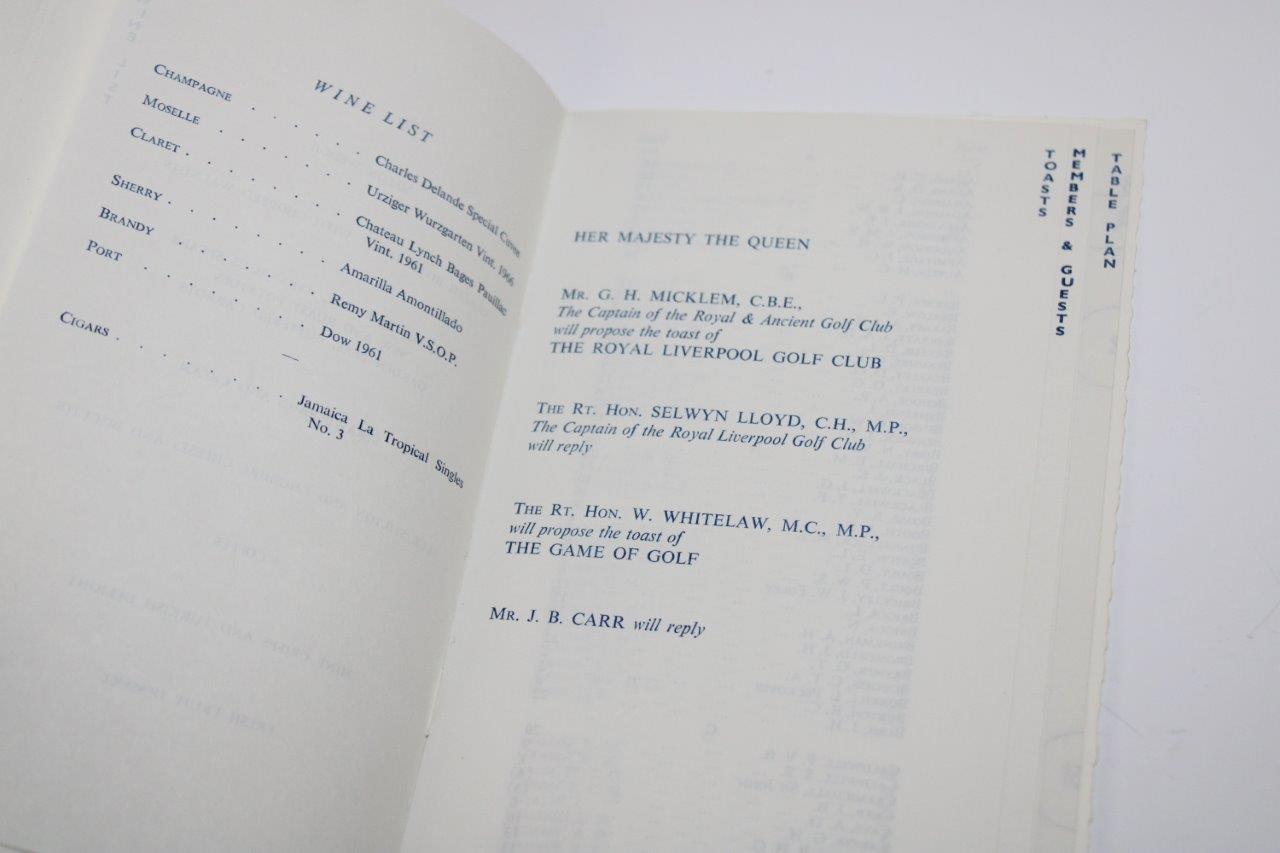 WINE LIST
CHAMPAGNE . . . . . . Charles Delande Special Cuvee
MOSELLE . . . . . . . Urziger Wurzgarten Vint. 1966
CLARET . . . . . . . . Chateau Lynch Bages Pauillac
Vint. 1961
SHERRY . . . . . . . . Amarilla Amontillado
BRANDY . . . . . . . Remy Martin V.S.O.P.
PORT . . . . . . . Dow 1961
—
CIGARS . . . . . . . . Jamaica La Tropical Singles
No. 3
HER MAJESTY THE QUEEN
MR. G. H. MICKLEM, C.B.E.,
The Captain of the Royal & Ancient Golf Club
will propose the toast of
THE ROYAL LIVERPOOL GOLF CLUB
THE RT. HON. SELWYN LLOYD, C.H., M.P.,
The Captain of the Royal Liverpool Golf Club
will reply
THE RT. HON. W. WHITELAW, M.C., M.P.,
will propose the toast of
THE GAME OF GOLF
MR. J. B. CARR will reply
TOASTS
MEMBERS & GUESTS
TABLE PLAN